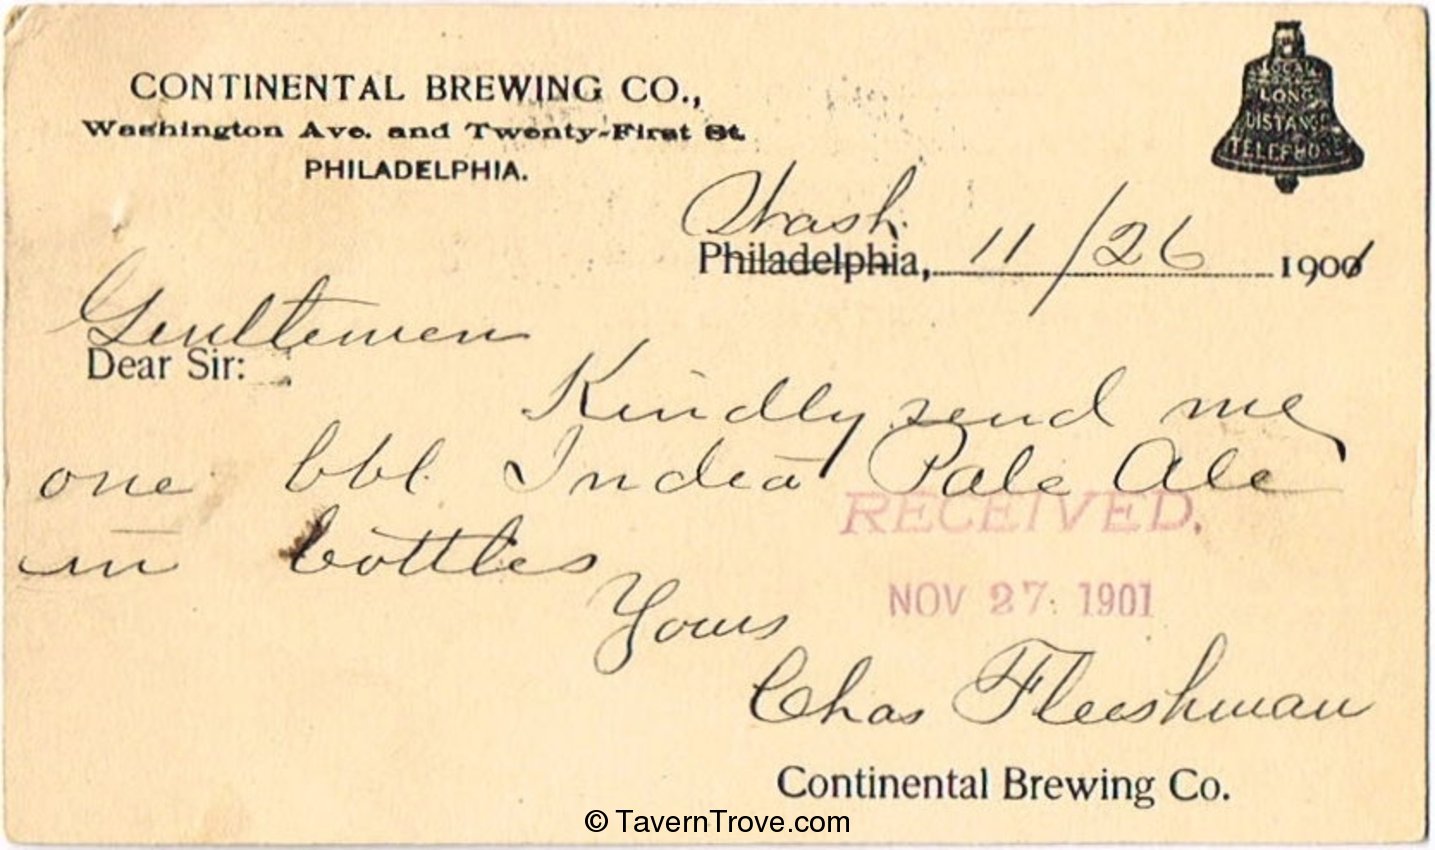 CONTINENTAL BREWING CO.,
Washington Ave. and Twenty-First St.
PHILADELPHIA.
LOCAL
LONG
DISTANCE
TELEPHONE
Wash.
Philadelphia, 11/26 1901
Gentlemen
Dear Sir:
Kindly send me
one bbl. India Pale Ale
in bottles
RECEIVED.
NOV 27. 1901
Yours
Chas Fleishman
Continental Brewing Co.
© TavernTrove.com